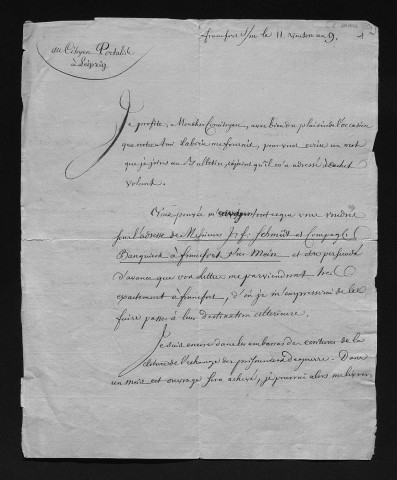 francfort s/m le 11 vendem. an 9.
au Citoyen Portalis
à Leipzig
Je profite, Mon cher Concitoyen, avec bien du plaisir de l'occasion
que notre Ami Laborie me fournit, pour vous écrire un mot
que je joins au Bulletin, qu'il m'a adressé à cachet
volant.
Vous pouvez m' tout ce que vous voudrez
sous l'adresse de Messieurs J. f. Schmidt et Compagie
Banquiers à francfort sur Mein et être persuadé
d'avance que vos lettres me parviendront très
exactement à francfort, d'où je m'empresserai de les
faire passer à leur destination ultérieure.
Je suis encore dans les embarras des écritures de la
clôture de l'echange des prisonniers de guerre. Dans
un mois cet ouvrage sera achevé, je pourrai alors me livrer